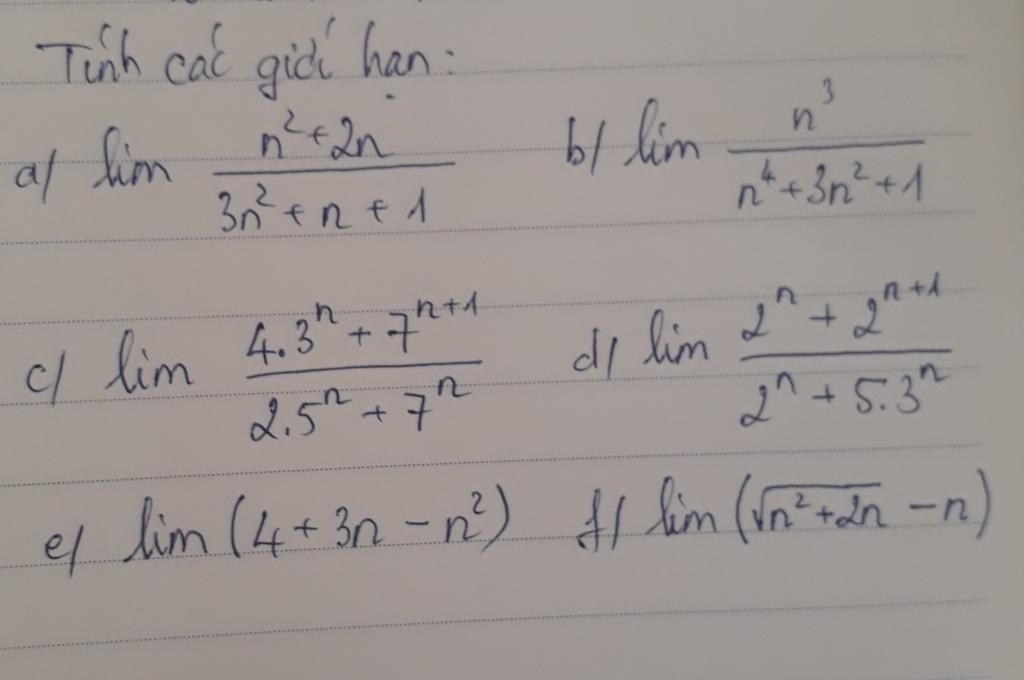 Tính các giới hạn:
a/ lim (n² + 2n)/(3n² + n + 1) b/ lim n³/(n⁴ + 3n² + 1)
c/ lim (4.3ⁿ + 7ⁿ⁺¹)/(2.5ⁿ + 7ⁿ) d/ lim (2ⁿ + 2ⁿ⁺¹)/(2ⁿ + 5.3ⁿ)
e/ lim (4 + 3n - n²) f/ lim (√(n² + 2n) - n)